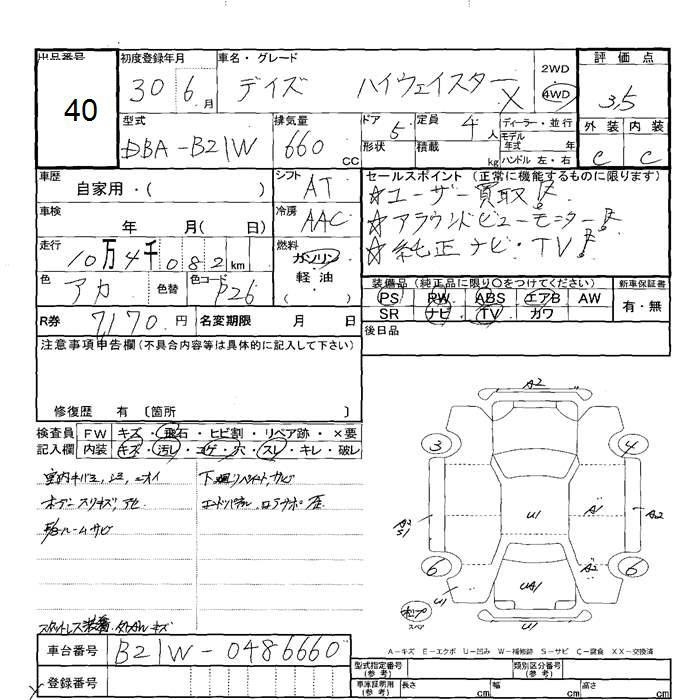 出品番号
40
初度登録年月
30 6月
車名・グレード
デイズ ハイウェイスター X
2WD
4WD
評価点
3.5
型式
DBA-B21W
排気量
660 CC
ドア
5
定員
4人
形状
積載
kg
ディーラー・並行
モデル
年式 年
ハンドル 左・右
外装 内装
C C
車歴
自家用・( )
シフト
AT
車検
年 月( 日)
冷房
AAC
走行
10万4千082km
燃料
ガソリン
軽油
( )
色
アカ
色替
色コード
P26
R券
7170円
名変期限 月 日
セールスポイント(正常に機能するものに限ります)
☆ユーザー買取!!
☆アラウンドビューモニター!!
☆純正ナビ・TV!!
装備品(純正品に限り○をつけてください)
新車保証書
PS PW ABS エアB AW
SR ナビ TV カワ
有・無
後日品
注意事項申告欄(不具合内容等は具体的に記入して下さい)
修復歴 有 〔箇所 〕
検査員
記入欄
FW キズ・飛石・ヒビ割・リペア跡・×要
内装 キズ・汚レ・コゲ・穴・スレ・キレ・破レ
下廻リペイント,サビ
ボデースリキズ,アセ
ルームサビ
スタットレス装着,外AWキズ
A2
3
4
A2
S1
U1
A1
A2
6
A2
6
UA1
U1
U1
松プ
スペア
A-キズ E-エクボ U-凹み W-補修跡 S-サビ C-腐食 XX-交換済
車台番号
B21W-0486660
登録番号
型式指定番号
(参考)
類別区分番号
(参考)
車庫証明用
(参考)
長さ cm
幅 cm
高さ cm